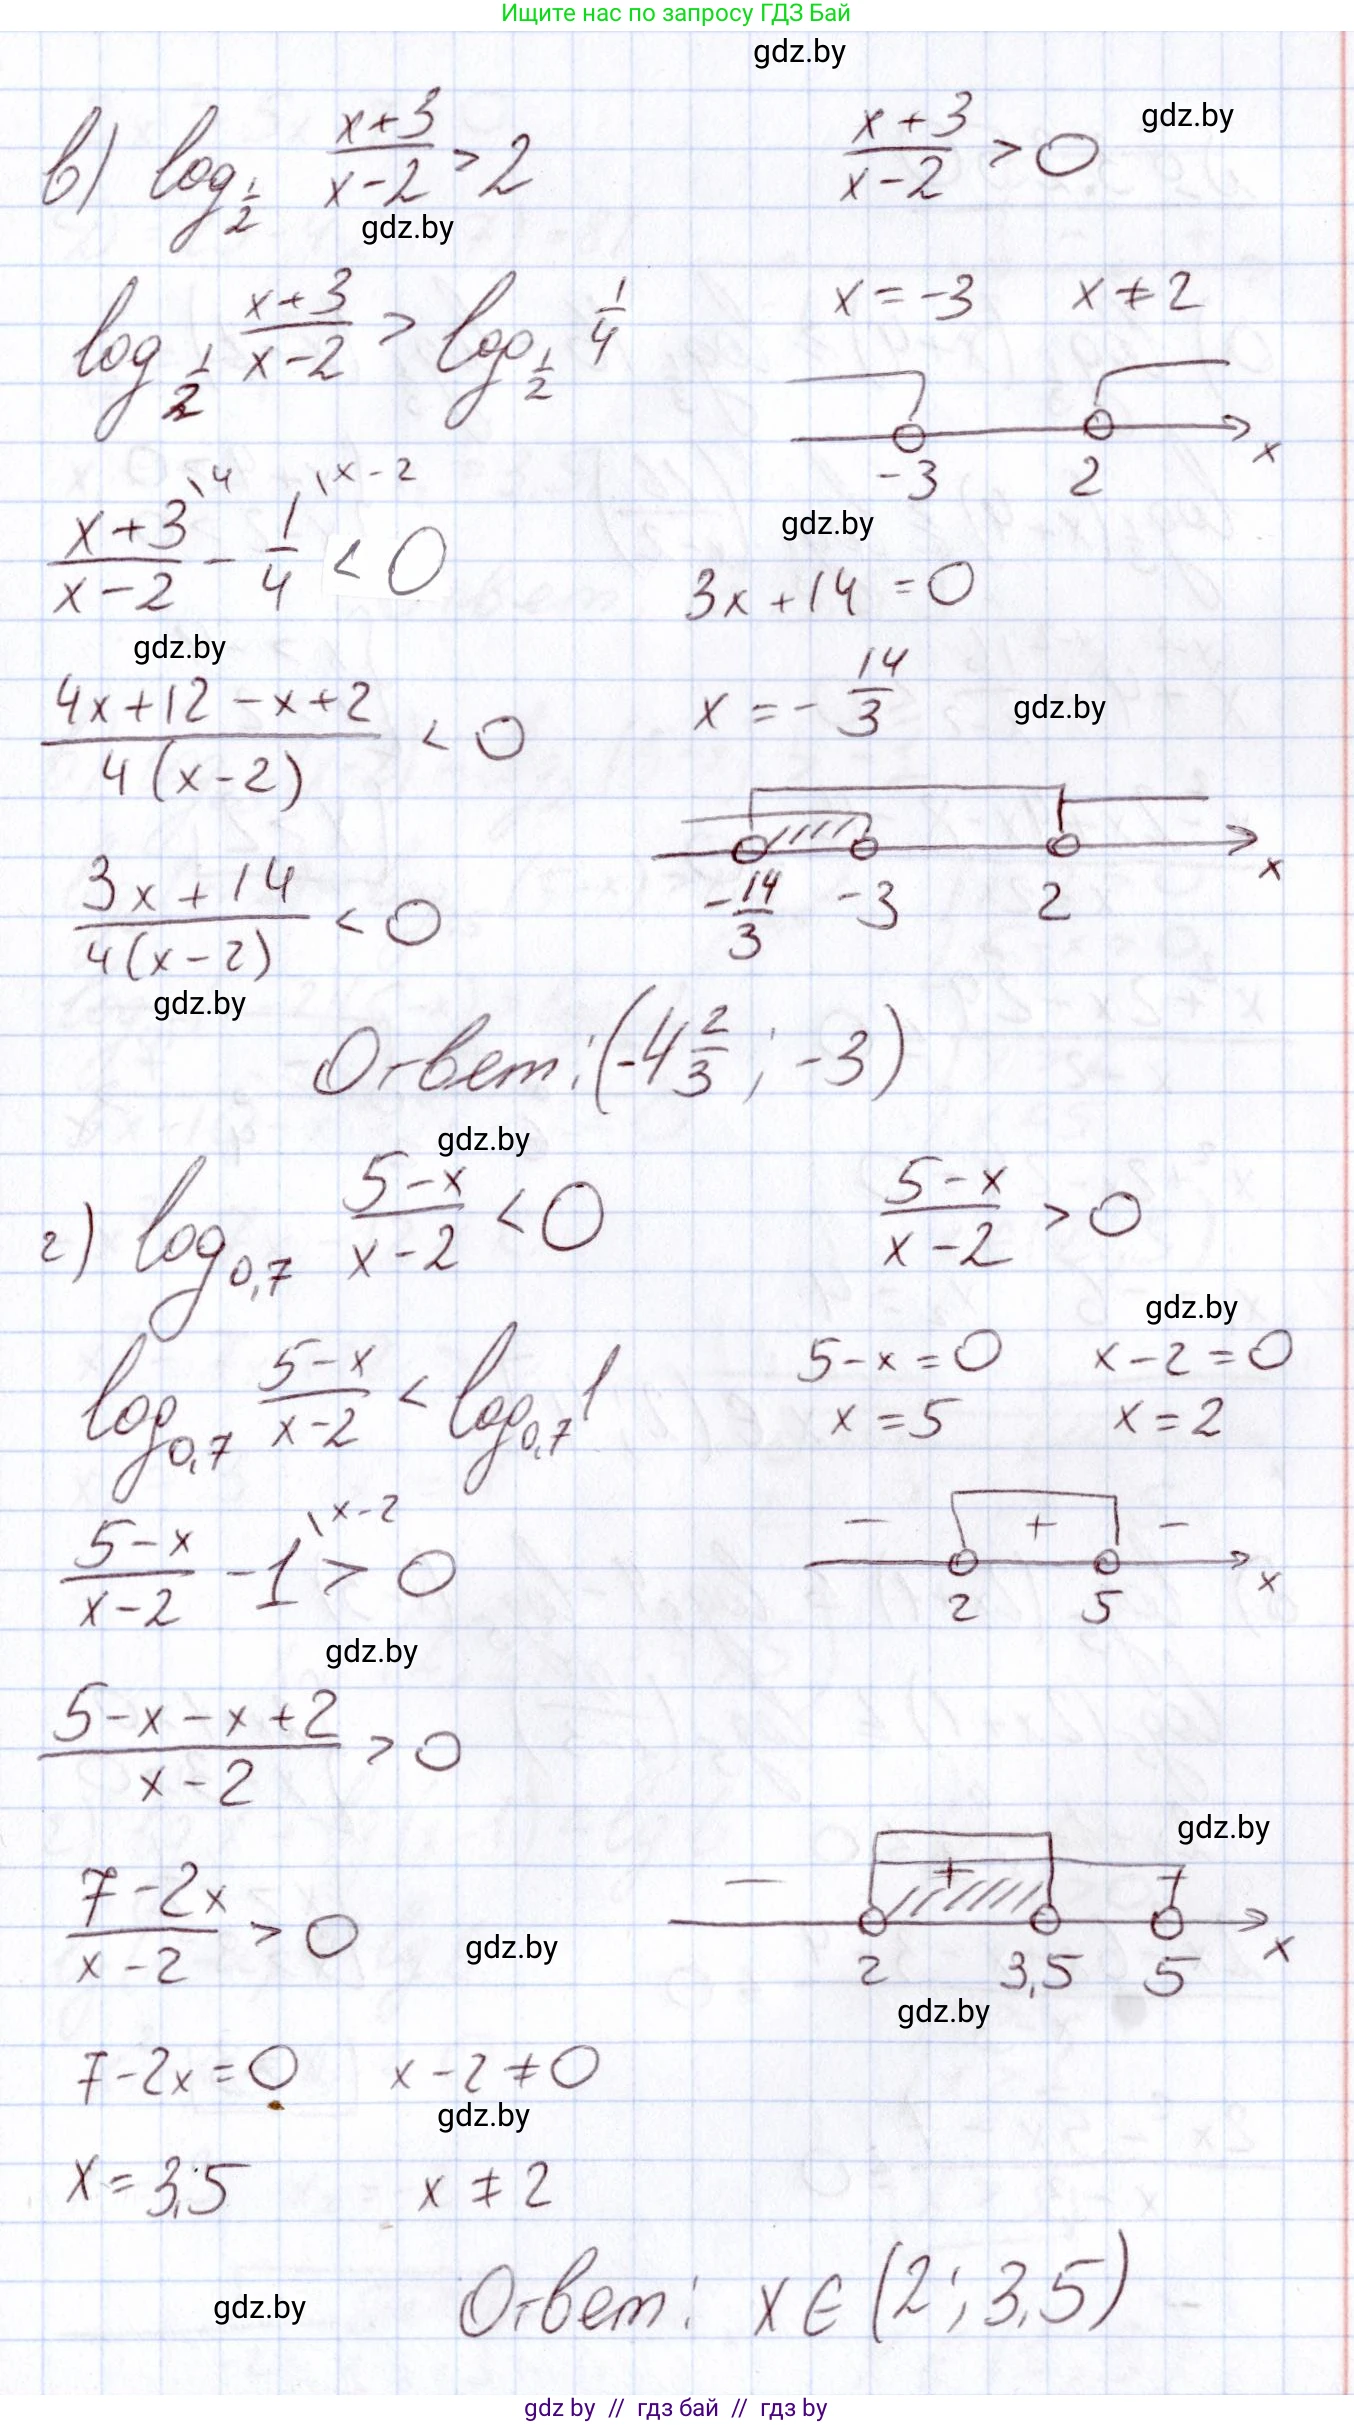 Ищите нас по запросу ГДЗ Бай
gdz.by
в) log_{1/2} (x+3)/(x-2) > 2
(x+3)/(x-2) > 0
gdz.by
gdz.by
log_{1/2} (x+3)/(x-2) > log_{1/2} 1/4
x = -3 x ≠ 2
-3 2 x
gdz.by
(x+3)/(x-2) \4 - 1/4 \x-2 < 0
3x + 14 = 0
gdz.by
(4x+12-x+2)/(4(x-2)) < 0
x = -14/3
gdz.by
-14/3 -3 2 x
(3x+14)/(4(x-2)) < 0
gdz.by
Ответ: (-4 2/3 ; -3)
gdz.by
г) log_{0,7} (5-x)/(x-2) < 0
(5-x)/(x-2) > 0
gdz.by
log_{0,7} (5-x)/(x-2) < log_{0,7} 1
5-x = 0 x-2 = 0
x = 5 x = 2
(5-x)/(x-2) - 1 \x-2 > 0
- + -
2 5 x
gdz.by
(5-x-x+2)/(x-2) > 0
gdz.by
(7-2x)/(x-2) > 0
- + +
2 3,5 5 x
gdz.by
gdz.by
7-2x = 0 x-2 ≠ 0
gdz.by
x = 3,5 x ≠ 2
Ответ: x ∈ (2; 3,5)
gdz.by
gdz by // гдз бай // гдз by